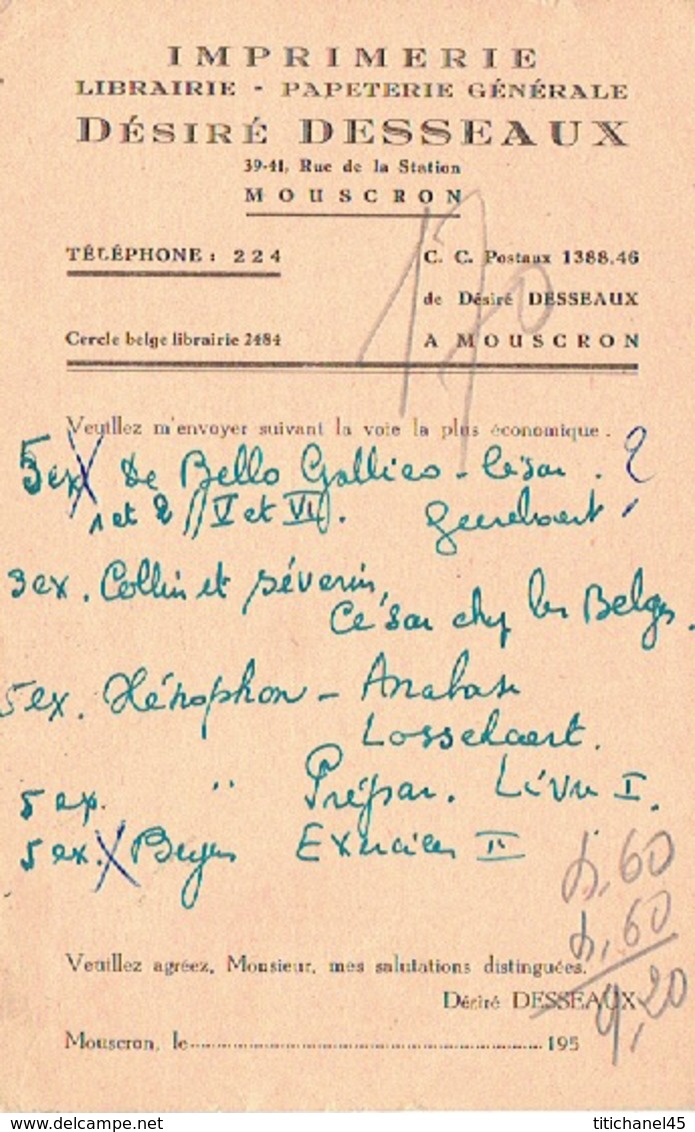 IMPRIMERIE
LIBRAIRIE - PAPETERIE GÉNÉRALE
DÉSIRÉ DESSEAUX
39-41, Rue de la Station
MOUSCRON
170
TÉLÉPHONE : 224
C. C. Postaux 1388.46
de Désiré DESSEAUX
Cercle belge librairie 2484
A MOUSCRON
Veuillez m'envoyer suivant la voie la plus économique :
5 ex De Bello Gallico - César . ?
1 et 2 // V et VI.
3 ex. Collin et Séverin,
César chez les Belges.
5 ex. Xénophon - Anabase
Losselaert.
5 ex. " Prépar. Livre I.
5 ex. Exercices II
,60
,60
9,20
Veuillez agréez, Monsieur, mes salutations distinguées.
Désiré DESSEAUX
Mouscron, le 195
titichanel45